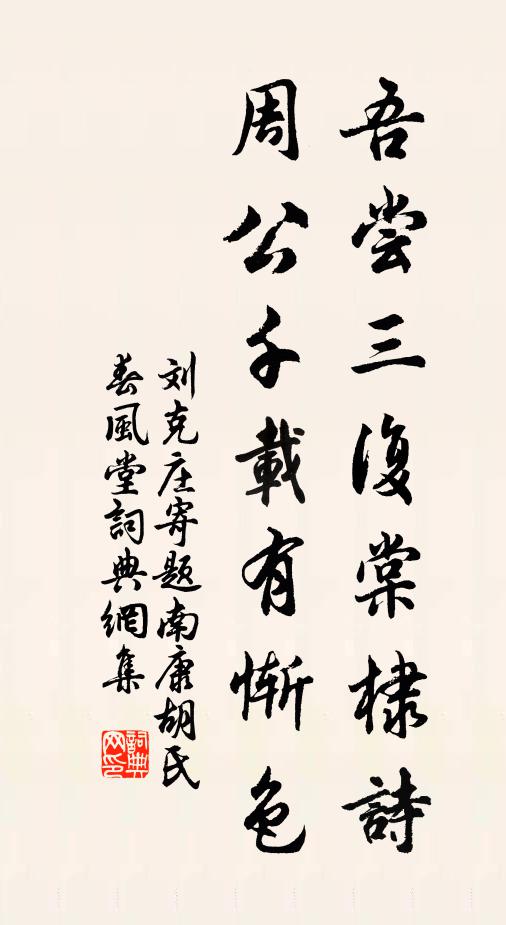 吾尝三復棠棣詩
周公千載有慚色
刘克庄寄题南康胡氏
春風堂詞典網集
詞典网印